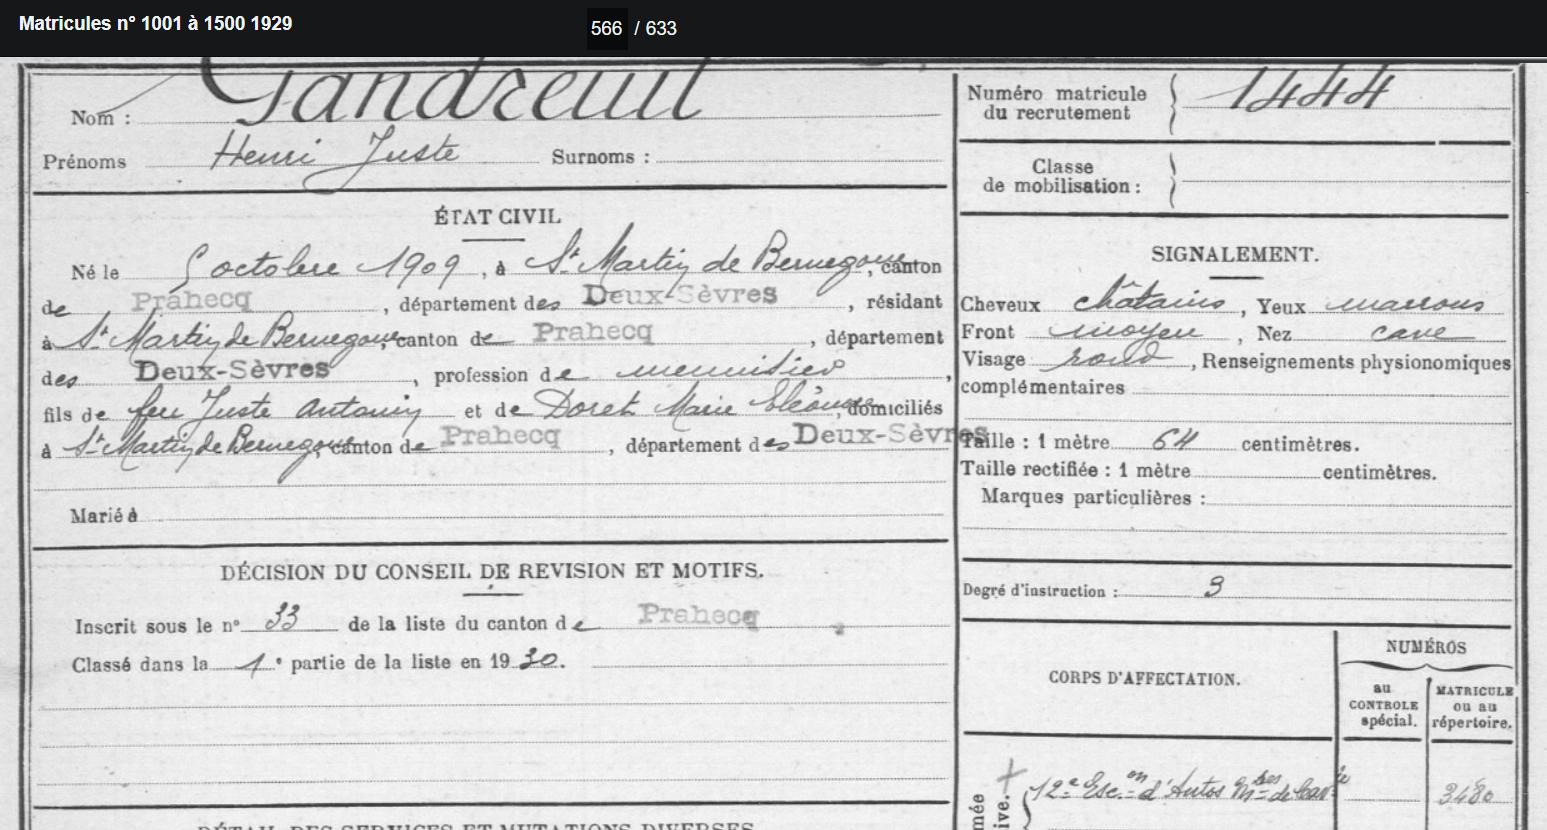 Matricules n° 1001 à 1500 1929
566 / 633
Nom : Gandreuil
Prénoms Henri Juste Surnoms :
ÉTAT CIVIL
Né le 5 octobre 1909, à St Martin de Bernegoue, canton
de Prahecq, département des Deux-Sèvres, résidant
à St Martin de Bernegoue, canton de Prahecq, département
des Deux-Sèvres, profession de menuisier,
fils de feu Juste Antonin et de Doret Marie Eléonore, domiciliés
à St Martin de Bernegoue, canton de Prahecq, département des Deux-Sèvres
Marié à
DÉCISION DU CONSEIL DE REVISION ET MOTIFS.
Inscrit sous le n° 33 de la liste du canton de Prahecq
Classé dans la 1e partie de la liste en 1930.
DÉTAIL DES SERVICES ET MUTATIONS DIVERSES
Numéro matricule
du recrutement 1444
Classe
de mobilisation :
SIGNALEMENT.
Cheveux châtains, Yeux marrons
Front moyen, Nez cave
Visage rond, Renseignements physionomiques
complémentaires
Taille : 1 mètre 64 centimètres.
Taille rectifiée : 1 mètre centimètres.
Marques particulières :
Degré d'instruction : 3
CORPS D'AFFECTATION.
NUMÉROS
au
CONTROLE
spécial.
MATRICULE
ou au
répertoire.
12e Escon d'Autos Mses de Cavie
3480